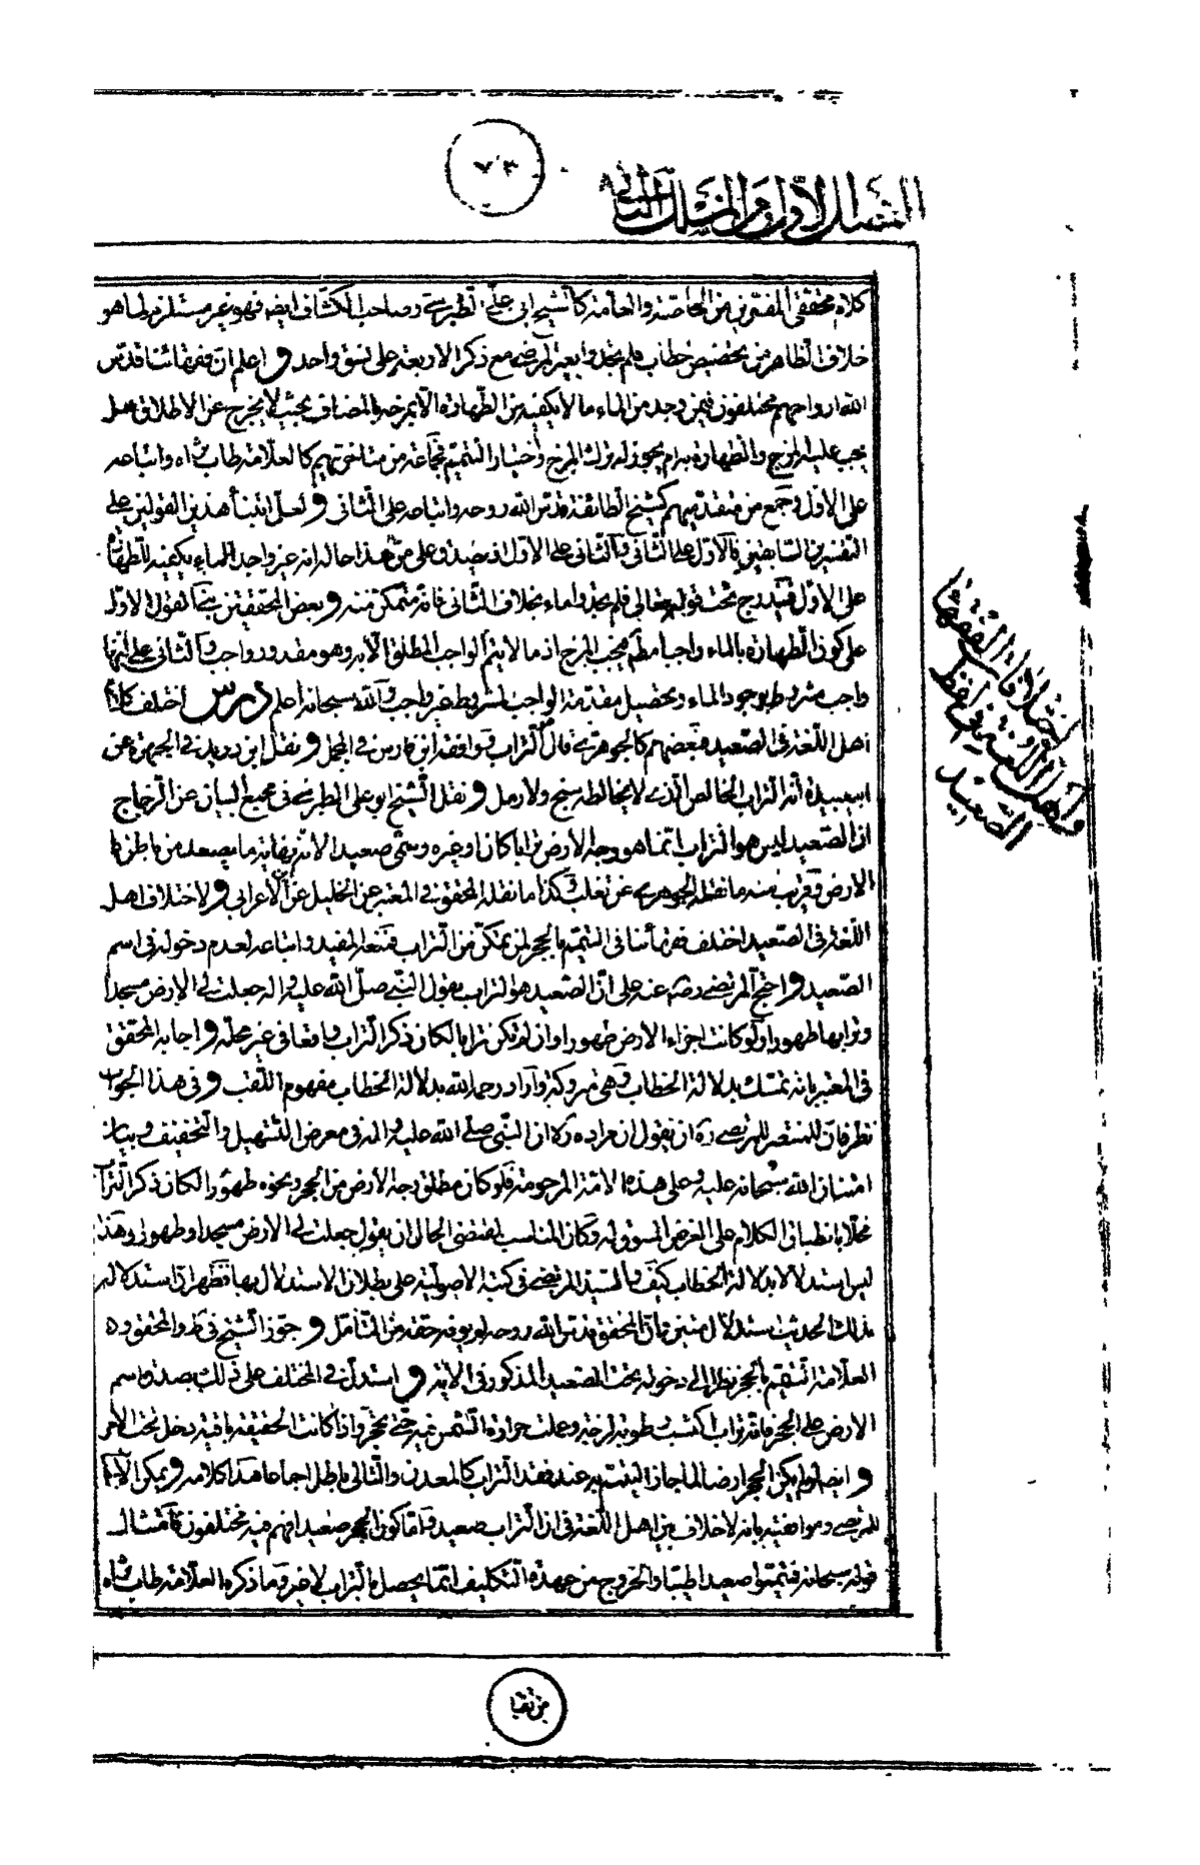 ٧٣
الفصل الاول من المسلك الثالث
كلام محققي المفسرين من الخاصة والعامة كالشيخ ابي علي الطبرسي وصاحب الكشاف ايضا فهو غير مستلزم لما هو
خلاف الظاهر من تخصيص خطاب فلم تجدوا بغير المرضى مع ذكر الاربعة على نسق واحد و اعلم ان فقهائنا قدس
الله ارواحهم مختلفون فيمن وجد من الماء ما لا يكفيه من الطهارة الا بمزجه بالمضاف بحيث لا يخرج عن الاطلاق هل
يجب عليه المزج والطهارة به ام يجوز له ترك المزج واختيار التيمم فجماعة من متأخريهم كالعلامة طاب ثراه واتباعه
على الاول وجمع من متقدميهم كشيخ الطائفة قدس الله روحه واتباعه على الثاني و لعل ابتناء هذين القولين على
التفسيرين السابقين فالاول على الثاني والثاني على الاول اذ يصدق على من هذا حاله انه غير واجد لماء يكفيه للطهارة
على الاول فيندرج تحت قوله تعالى فلم تجدوا ماء بخلاف الثاني فانه متمكن منه و بعض المحققين بنى القول الاول
على كون الطهارة بالماء واجبا مطلقا فيجب المزج اذ ما لا يتم الواجب المطلق الا به وهو مقدور واجب والثاني على انها
واجب مشروط بوجود الماء وتحصيل مقدمة الواجب المشروط غير واجب والله سبحانه اعلم درس اختلف كلام
اهل اللغة في الصعيد فبعضهم كالجوهري قال التراب ووافقه ابن فارس في المجمل و نقل ابن دريد في الجمهرة عن
ابي عبيدة انه التراب الخالص الذي لا يخالطه سبخ ولا رمل و نقل الشيخ ابو علي الطبرسي في مجمع البيان عن الزجاج
ان الصعيد ليس هو التراب انما هو وجه الارض ترابا كان او غيره وسمي صعيدا لانه نهاية ما يصعد من باطن
الارض وقريب منه ما نقله الجوهري عن ثعلب وكذا ما نقله المحقق في المعتبر عن الخليل عن ابن الاعرابي و لاختلاف اهل
اللغة في الصعيد اختلف فقهائنا في التيمم بالحجر لمن تمكن من التراب فمنعه المفيد واتباعه لعدم دخوله في اسم
الصعيد و احتج المرتضى رضي الله عنه على ان الصعيد هو التراب بقول النبي صلى الله عليه واله جعلت لي الارض مسجدا
وترابها طهورا ولو كانت اجزاء الارض طهورا وان لم تكن ترابا لكان ذكر التراب واقعا في غير محله و اجابه المحقق
في المعتبر بانه تمسك بدلالة الخطاب وهي متروكة واراد رحمه الله بدلالة الخطاب مفهوم اللقب و في هذا الجواب
نظر فان للمنتصر للمرتضى ره ان يقول ان مراده ره ان النبي صلى الله عليه واله في معرض التسهيل والتخفيف وبيان
امتنان الله سبحانه عليه وعلى هذه الامة المرحومة فلو كان مطلق وجه الارض من الحجر ونحوه طهورا لكان ذكر التراب
مخلا بانطباق الكلام على الغرض المسوق له وكان المناسب لمقتضى الحال ان يقول جعلت لي الارض مسجدا وطهورا وهذا
ليس استدلالا بدلالة الخطاب كيف والسيد المرتضى في كتبه الاصولية على بطلان الاستدلال بها فظهر ان استدلاله
بذلك الحديث استدلال متين وان المحقق قدس الله روحه لم يوفه حقه من التأمل و جوز الشيخ في ط والمحقق و
العلامة التيمم بالحجر نظرا الى دخوله تحت الصعيد المذكور في الاية و استدل في المختلف على ذلك بصدق اسم
الارض على الحجر فانه تراب اكتسب رطوبة لزجة وعملت حرارة الشمس فيه حتى تحجر واذا كانت الحقيقة باقية دخل تحت الامر
و ايضا لو لم يكن الحجر ارضا لما جاز التيمم به عند فقد التراب كالمعدن والتالي باطل اجماعا هذا كلامه و يمكن
للمرتضى وموافقيه بانه لا خلاف بين اهل اللغة في ان التراب صعيد واما كون الحجر صعيدا فهم فيه مختلفون فامتثال
قوله سبحانه فتيمموا صعيدا طيبا والخروج من عهدة التكليف انما يحصل بالتراب لا غير وما ذكره العلامة طاب ثراه
اختلاف الفقهاء
واهل اللغة في لفظ
الصعيد
من بقاء